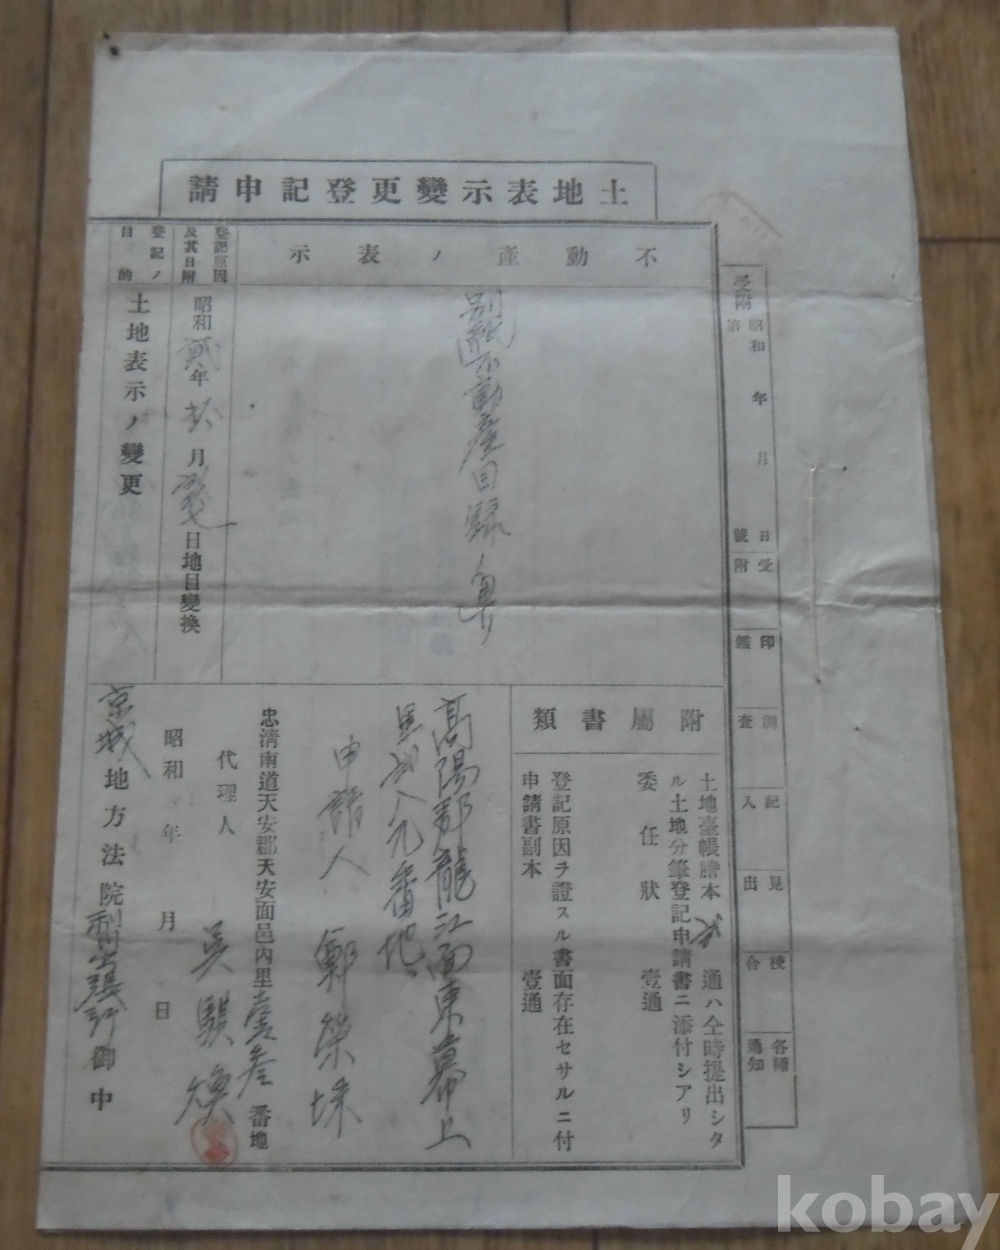 土地表示變更登記申請
受附 昭和 年 月 日
第 號
受附
印鑑
調査
記入
見出
後合
各種通知
不動產ノ表示
別紙不動產目錄ノ通リ
登記原因及其日附
昭和貳年 月 日地目變換
登記ノ目的
土地表示ノ變更
附屬書類
土地臺帳謄本 通ハ仝時提出シタ
ル土地分筆登記申請書ニ添付シアリ
委任狀 壹通
登記原因ヲ證スル書面存在セサルニ付
申請書副本 壹通
高陽郡龍江面東幕上
里 八九番地
申請人 鄭榮
忠清南道天安郡天安面邑內里壹參番地
代理人 吳騏煥
昭和 年 月 日
京城地方法院 出張所御中
kobay